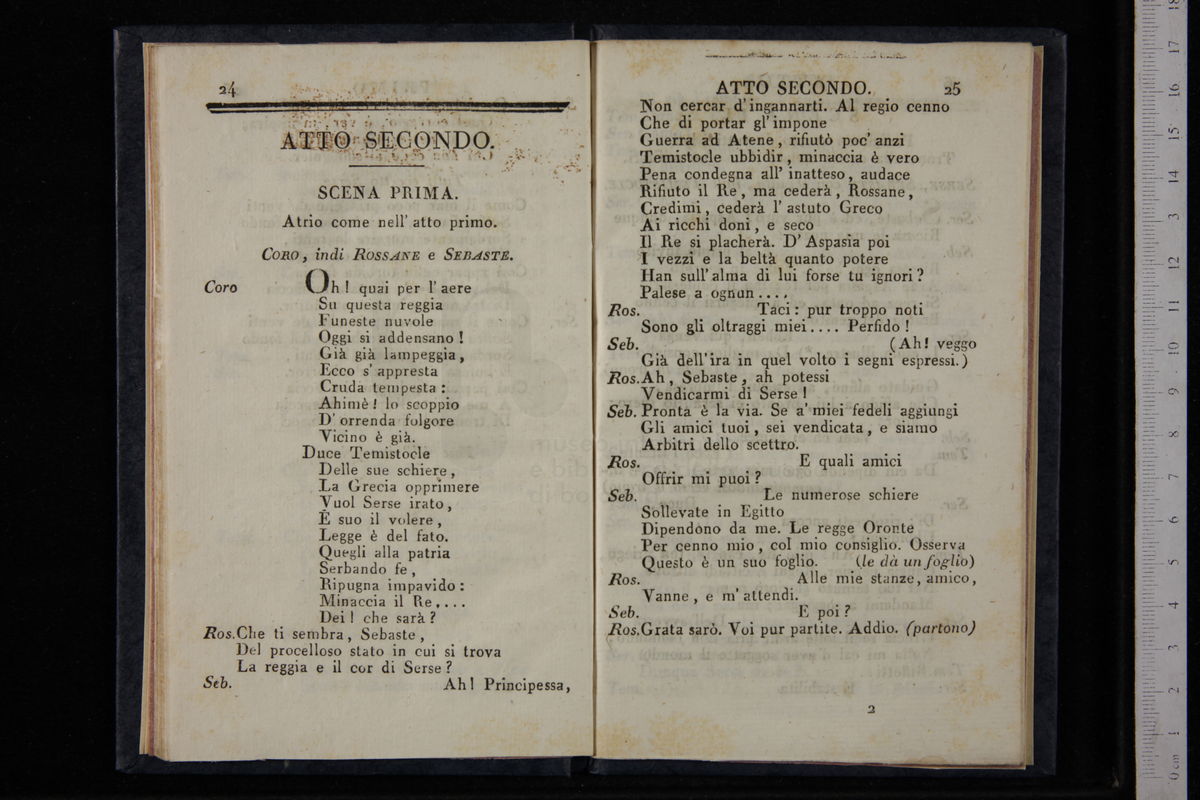 24
ATTO SECONDO.
SCENA PRIMA.
Atrio come nell' atto primo.
CORO, indi ROSSANE e SEBASTE.
Coro Oh! quai per l' aere
Su questa reggia
Funeste nuvole
Oggi si addensano!
Già già lampeggia,
Ecco s' appresta
Cruda tempesta:
Ahimè! lo scoppio
D' orrenda folgore
Vicino è già.
Duce Temistocle
Delle sue schiere,
La Grecia opprimere
Vuol Serse irato,
È suo il volere,
Legge è del fato.
Quegli alla patria
Serbando fe,
Ripugna impavido:
Minaccia il Re,...
Dei! che sarà?
Ros. Che ti sembra, Sebaste,
Del procelloso stato in cui si trova
La reggia e il cor di Serse?
Seb. Ah! Principessa,
ATTO SECONDO. 25
Non cercar d' ingannarti. Al regio cenno
Che di portar gl' impone
Guerra ad Atene, rifiutò poc' anzi
Temistocle ubbidir, minaccia è vero
Pena condegna all' inatteso, audace
Rifiuto il Re, ma cederà, Rossane,
Credimi, cederà l' astuto Greco
Ai ricchi doni, e seco
Il Re si placherà. D' Aspasia poi
I vezzi e la beltà quanto potere
Han sull' alma di lui forse tu ignori?
Palese a ognun....
Ros. Taci: pur troppo noti
Sono gli oltraggi miei.... Perfido!
Seb. (Ah! veggo
Già dell'ira in quel volto i segni espressi.)
Ros. Ah, Sebaste, ah potessi
Vendicarmi di Serse!
Seb. Pronta è la via. Se a' miei fedeli aggiungi
Gli amici tuoi, sei vendicata, e siamo
Arbitri dello scettro.
Ros. E quali amici
Offrir mi puoi?
Seb. Le numerose schiere
Sollevate in Egitto
Dipendono da me. Le regge Oronte
Per cenno mio, col mio consiglio. Osserva
Questo è un suo foglio. (le dà un foglio)
Ros. Alle mie stanze, amico,
Vanne, e m' attendi.
Seb. E poi?
Ros. Grata sarò. Voi pur partite. Addio. (partono)
2